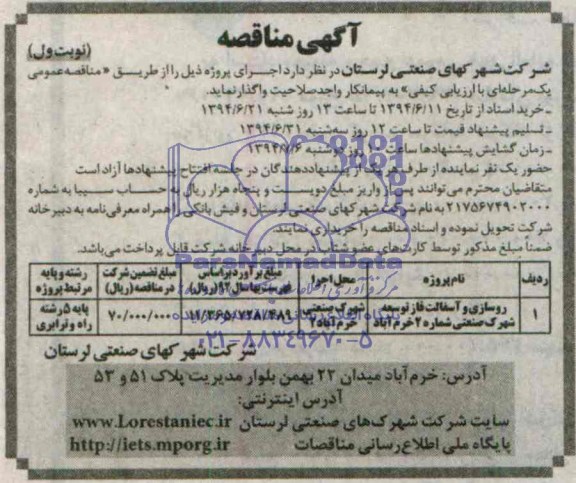 آگهی مناقصه
(نوبت ول)
شرکت شهرکهای صنعتی لرستان در نظر دارد اجرای پروژه ذیل را از طریق « مناقصه عمومی
یک مرحله‌ای با ارزیابی کیفی» به پیمانکار واجد صلاحیت واگذار نماید.
ـ خرید اسناد از تاریخ ۱۳۹۴/۶/۱۱ تا ساعت ۱۳ روز شنبه ۱۳۹۴/۶/۲۱
ـ تسلیم پیشنهاد قیمت تا ساعت ۱۲ روز سه‌شنبه ۱۳۹۴/۶/۳۱
ـ زمان گشایش پیشنهادها ساعت روز دوشنبه
حضور یک نفر نماینده از طرف هر یک از پیشنهاددهندگان در جلسه افتتاح پیشنهادها آزاد است
متقاضیان محترم می‌توانند پس از واریز مبلغ دویست و پنجاه هزار ریال به حساب سیبا به شماره
۲۱۷۵۶۷۴۹۰۲۰۰۰ به نام شرکت شهرکهای صنعتی لرستان و فیش بانکی را همراه معرفی‌نامه به دبیرخانه
شرکت تحویل نموده و اسناد مناقصه را خریداری نمایند.
ضمناً مبلغ مذکور توسط کارت‌های عضو شتاب در محل دبیرخانه شرکت قابل پرداخت می‌باشد.
ParsNamadData
ردیف نام پروژه محل اجرا مبلغ برآورد براساس فهرست بها سال ۹۴ (ریال) مبلغ تضمین شرکت در مناقصه (ریال) رشته و پایه مرتبط پروژه
۱ روسازی و آسفالت فاز توسعه شهرک صنعتی شماره ۲ خرم آباد شهرک صنعتی خرم آباد ۲ ۱۱/۳۶۵/۷۲۸/۴۸۹ ۷۰/۰۰۰/۰۰۰ پایه ۵ رشته راه و ترابری
۰۲۱-۸۸۳۴۹۶۷۰-۵
شرکت شهرکهای صنعتی لرستان
آدرس: خرم آباد میدان ۲۲ بهمن بلوار مدیریت پلاک ۵۱ و ۵۳
آدرس اینترنتی:
سایت شرکت شهرک‌های صنعتی لرستان www.Lorestaniec.ir
پایگاه ملی اطلاع‌رسانی مناقصات http://iets.mporg.ir